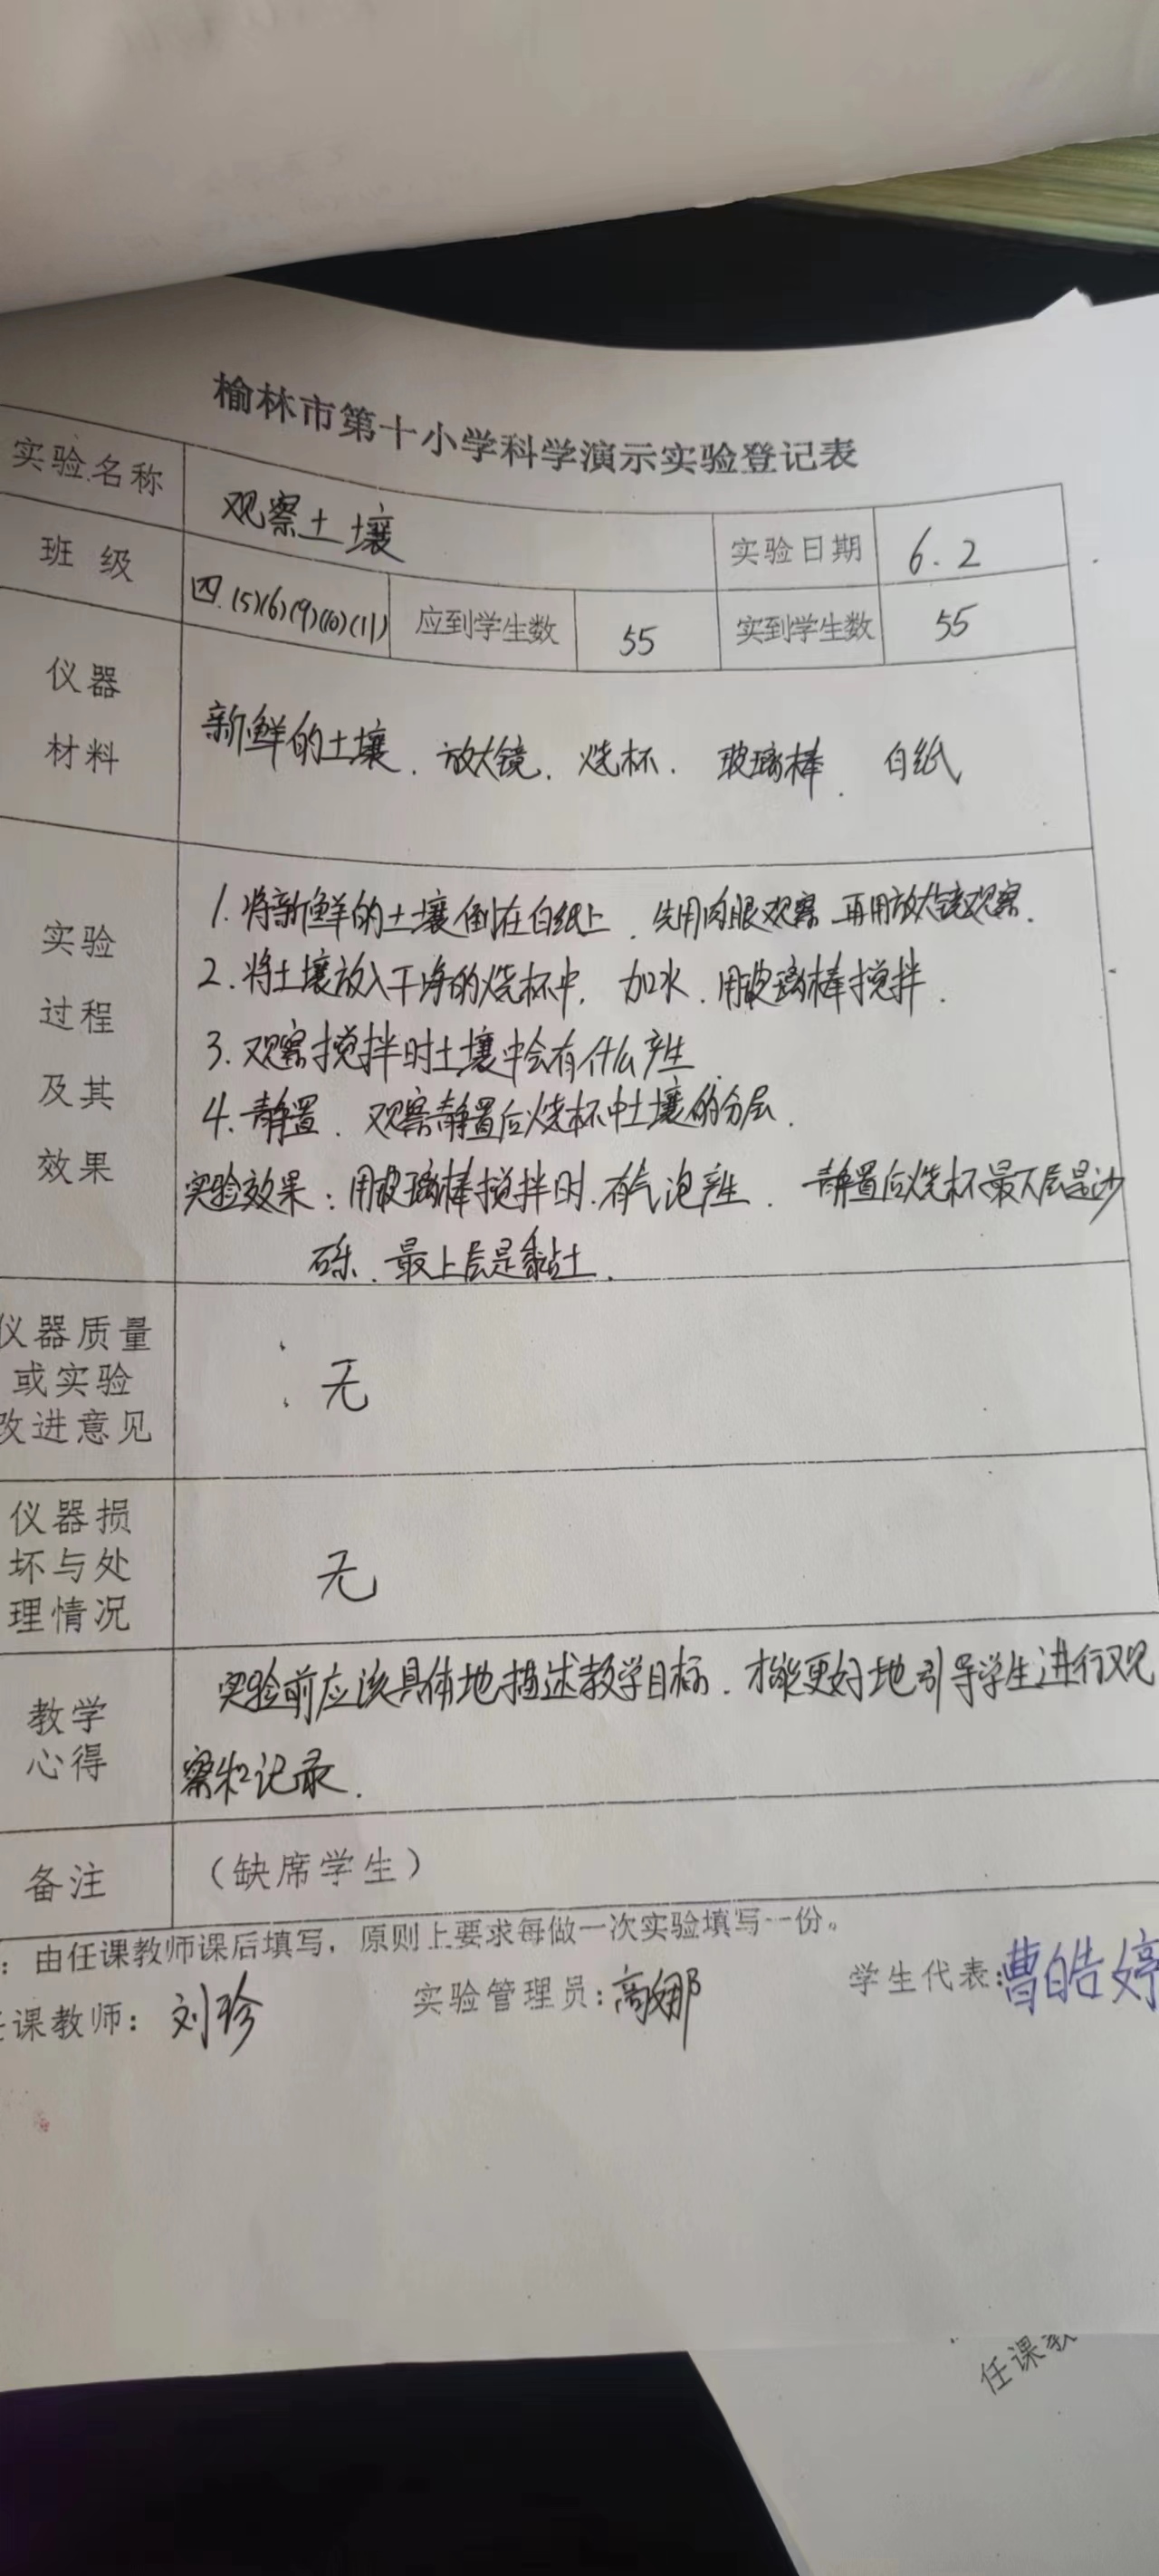 榆林市第十小学科学演示实验登记表
实验名称 观察土壤 实验日期 6.2
班级 四.(5)(6)(9)(10)(11) 应到学生数 55 实到学生数 55
仪器
材料
新鲜的土壤、放大镜、烧杯、玻璃棒、白纸
实验
过程
及其
效果
1.将新鲜的土壤倒在白纸上,先用肉眼观察 再用放大镜观察.
2.将土壤放入干净的烧杯中,加水,用玻璃棒搅拌.
3.观察搅拌时土壤中会有什么产生.
4.静置,观察静置后烧杯中土壤的分层.
实验效果:用玻璃棒搅拌时,有气泡产生. 静置后烧杯最下层是沙
砾,最上层是黏土.
仪器质量
或实验
改进意见
无
仪器损
坏与处
理情况
无
教学
心得
实验前应该具体地描述教学目标,才能更好地引导学生进行观
察和记录.
备注 (缺席学生)
:由任课教师课后填写,原则上要求每做一次实验填写一份。
任课教师:刘珍 实验管理员:高娜 学生代表:曹皓婷
任课教